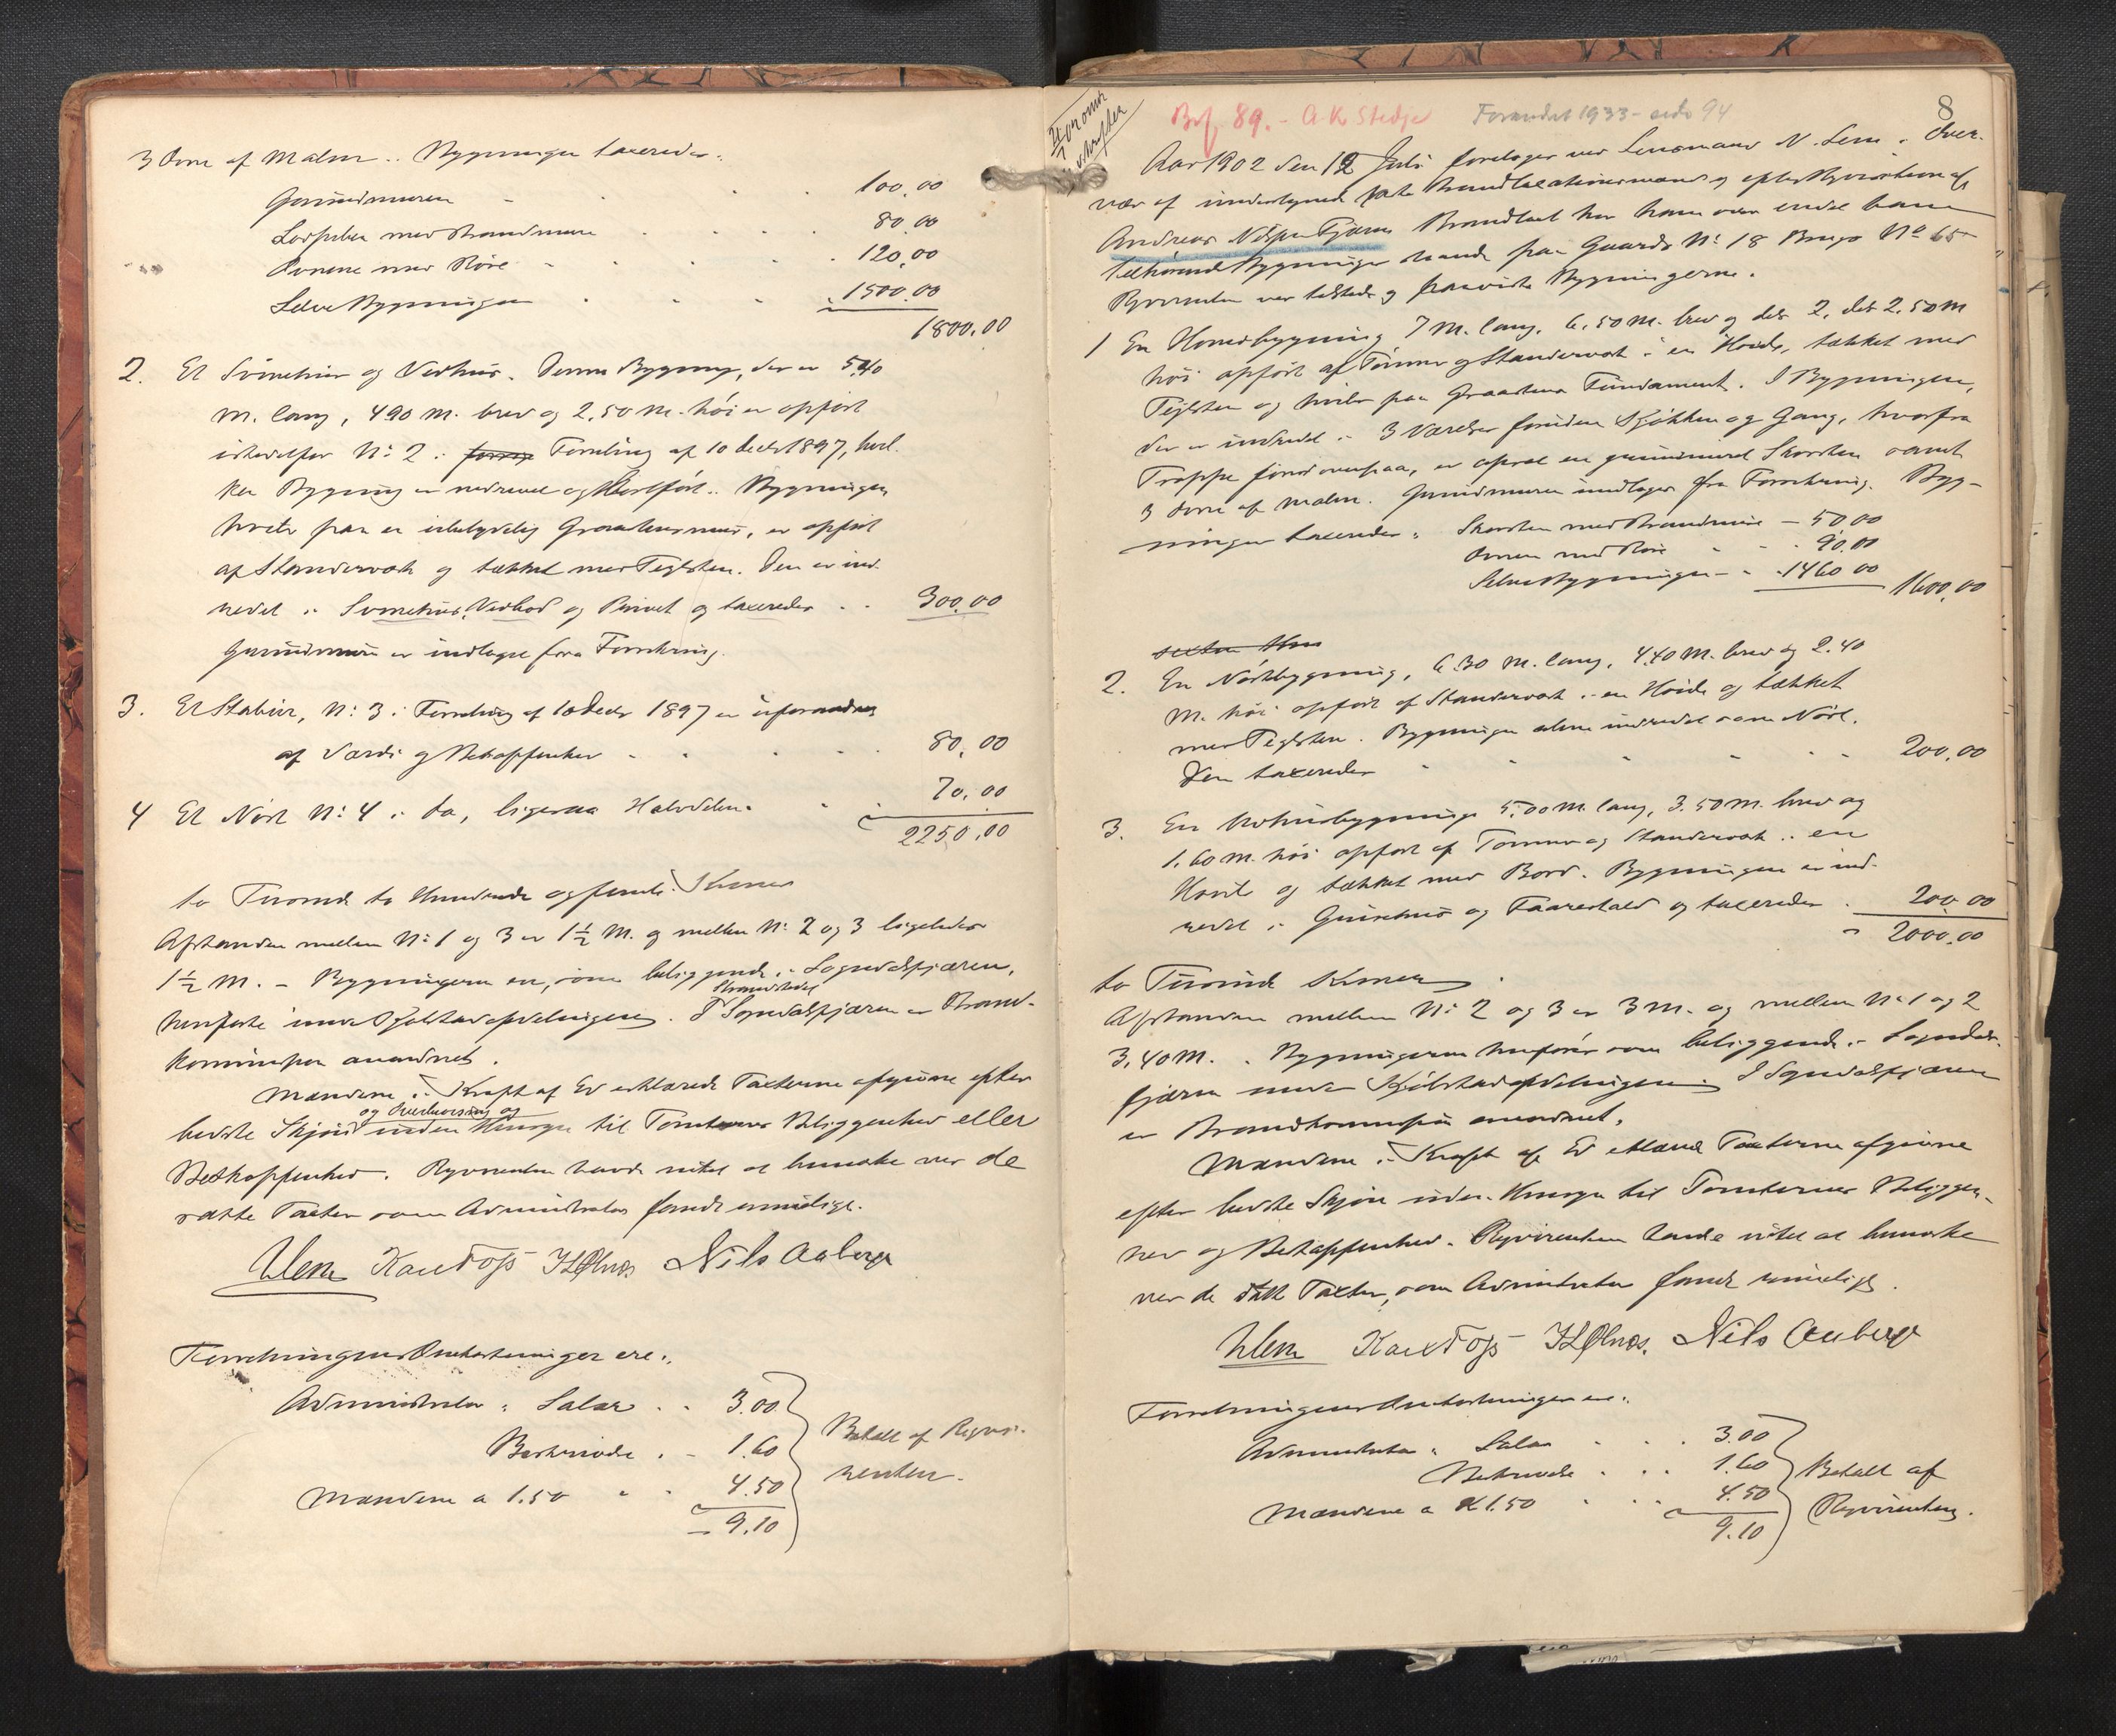 3 Ovne af Malm.. Bygningen taxeredes:
Grundmuren - . . 100,00
med Brandmure . . . . 80.00
Ovnene med Röre - . . . 120,00
Selve Bygningen . - - 1500.00
1800.00
2. Et Svinehus og Vedhus. Denne Bygning, der er 5.40
M. lang, 4.90 M. bred og 2,50 M. höi er opfört
istedetfor N: 2 i forrige Forretning af 10 Decbr 1897, hvil-
ken Bygning er nedrevet og bortfört. Bygningen
hviler paa en ubetydelig Graastensmur, er opfört
af Standerværk og tækket med Teglsten. Den er ind-
redet i Svinehus, Vedbod og Privet og taxeredes . . 300.00
Grundmuren er indtaget fra Forsikring.
3. Et Stabur, N: 3 i Forretning af 10 Decbr 1897 er uforandret
af Værdi og Beskaffenhed - . . . . 80,00
4 Et Nöst N: 4 i do, ligesaa Halvdelen . . 70.00
2250.00
to Tusinde to Hundrede og femti Kroner
Afstanden mellem N: 1 og 3 er 1½ M. og mellem N: 2 og 3 ligeledes
1½ M. - Bygningerne er, som beliggende i Sogndalsfjæren,
Strandstedet
henförte under Kjöbstadafdelingen. I Sogndalsfjæren er Brand-
kommission anordnet.
Mændene i Kraft af Ed erklærede Taxterne afgivne efter
og Overbevisning og
bedste Skjön uden Hensyn til Tomternes Beliggenhed eller
Beskaffenhed. Rekvirenten havde intet at bemærke ved de
satte Taxter som Administrator fandt rimelige.
NLem Karl Foss Nils Aaberge
Forretningens Omkostninger ere:
Administrator i Salær . . 3.00
1.60
Mændene a 1.50 . . 4.50
9.10
Betalt af Rekvi-
renten.
8
Brf. 89. - A. K. Stedje Forandret 1933 - side 94
Aar 1902 den 12 Juli foretoges ved Lensmand N. Lem i Over-
vær af undertegnede faste Brandtaxationsmænd og efter Rekvisition af
Andreas Nilsen Fjæren Brandtaxt over endel ham
tilhörende Bygninger staaende paa Gaards N: 18 Brugs No 65
Rekvirenten var tilstede og paaviste Bygningerne.
1 En Hovedbygning 7 M. lang, 6,50 M. bred og 2,50 M
höi opfört af Tömmer og Standerværk i en Höide, tækket med
Teglsten og hviler paa Graastens Fundament. I Bygningen,
der er indredet i 3 Værelser foruden Kjökken og Gang, hvorfra
Trappe förer ovenpaa, er opsat en grundmuret Skorsten samt
3 Ovne af Malm. Grundmuren undtages fra Forsikring. Byg-
ningen taxeredes: Skorsten med Brandmure - 50.00
Ovnene med Röre - - - 90.00
Selve Bygningen - - 1460 00
1600,00
2. En Nöstbygning, 6.30 M. lang, 4.40 M. bred og 2.40
M. höi opfört af Standerværk i en Höide og tækket
med Teglsten. Bygningen alene indredet som Nöst.
Den taxeredes - - - - - 200,00
3. En Uthusbygning 5,00 M. lang, 3.50 M. bred og
1.60 M. höi opfört af Tömmer og Standerværk i en
Höide og tækket med Bord. Bygningen er ind-
redet i Grisehus og Faarestald og taxeredes . 200.00
- 2000.00
to Tusinde Kroner.
Afstanden mellem N: 2 og 3 er 3 M. og mellem N: 1 og 2
3,40 M. . Bygningerne henföres som beliggende i Sogndals-
fjæren under Kjöbstadafdelingen. I Sogndalsfjæren
er Brandkommission anordnet.
Mændene i Kraft af Ed erklærede Taxterne afgivne
efter bedste Skjön uden Hensyn til Tomternes Beliggen-
hed og Beskaffenhed. Rekvirenten havde intet at bemærke
ved de satte Taxter, som Administrator fandt rimelige.
NLem Karl Foss Nils Aaberge
Forretningens Omkostninger ere:
Administrator i Salær . . . 3.00
1.60
Mændene a K 1.50 . . . 4.50
9.10
Betalt af
Rekvirenten.